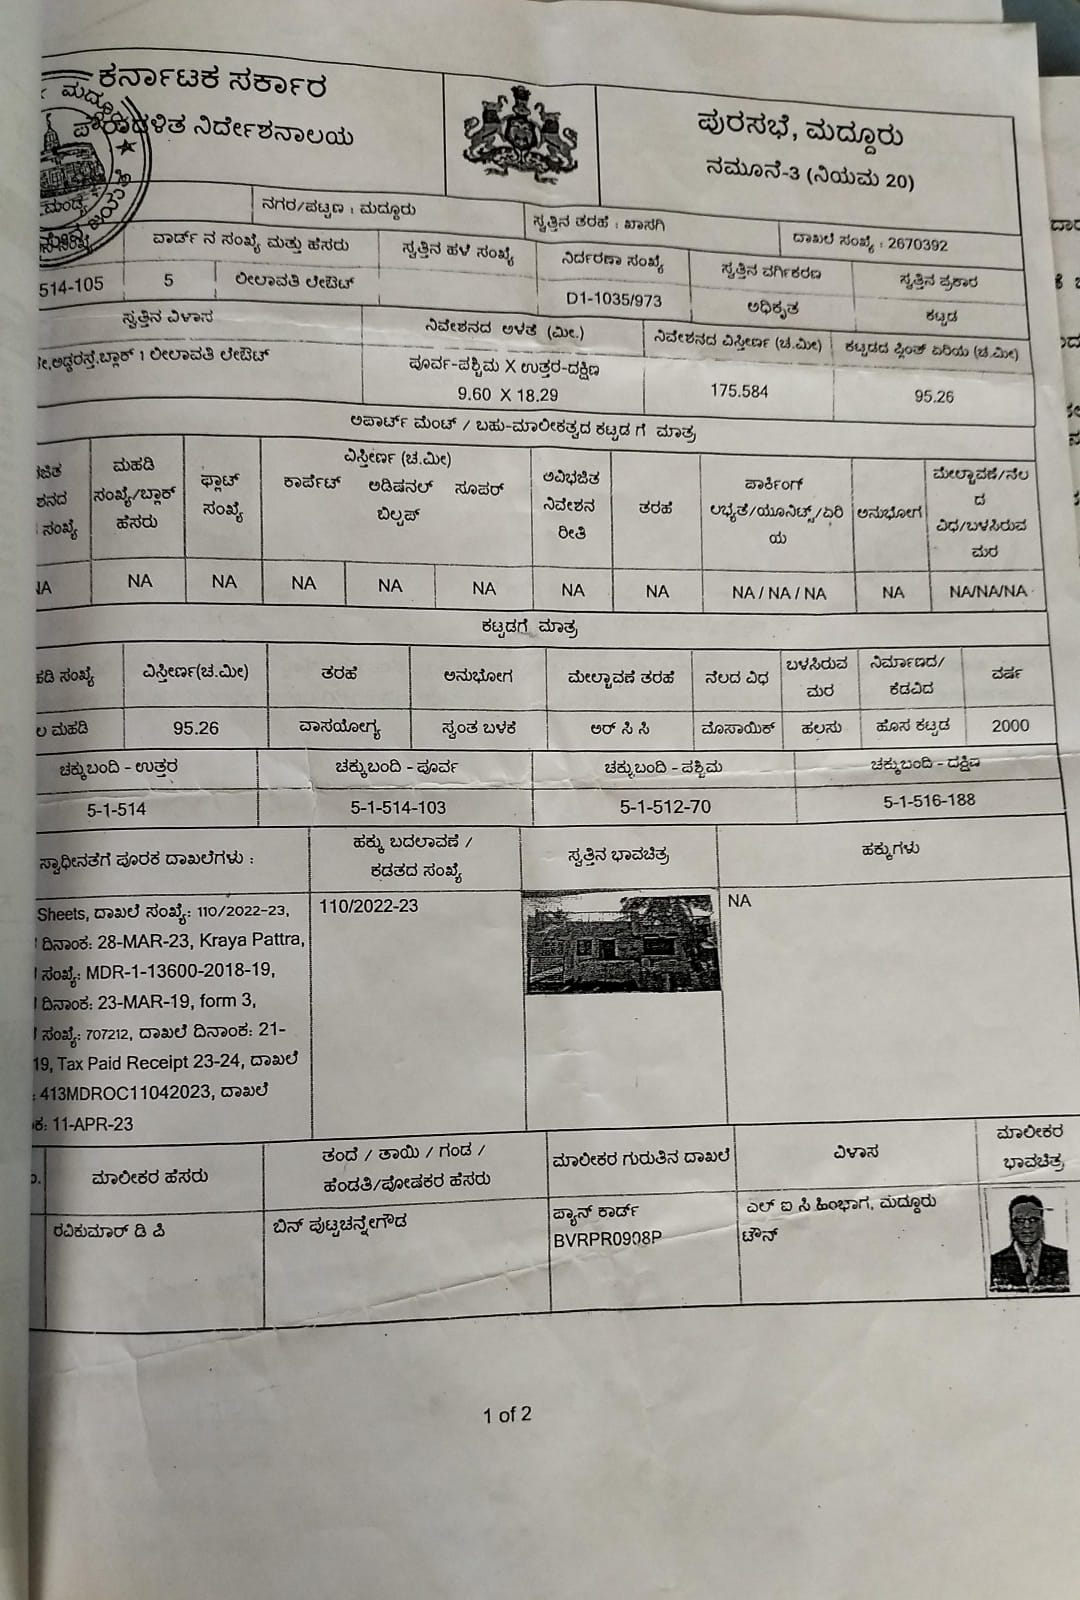 ಕರ್ನಾಟಕ ಸರ್ಕಾರ
ಪೌರಾಡಳಿತ ನಿರ್ದೇಶನಾಲಯ
ಪುರಸಭೆ, ಮದ್ದೂರು
ನಮೂನೆ-3 (ನಿಯಮ 20)
ನಗರ/ಪಟ್ಟಣ : ಮದ್ದೂರು
ಸ್ವತ್ತಿನ ತರಹೆ : ಖಾಸಗಿ
ದಾಖಲೆ ಸಂಖ್ಯೆ : 2670392
ವಾರ್ಡ್ ನ ಸಂಖ್ಯೆ ಮತ್ತು ಹೆಸರು
ಸ್ವತ್ತಿನ ಹಳೆ ಸಂಖ್ಯೆ
ನಿರ್ದರಣಾ ಸಂಖ್ಯೆ
ಸ್ವತ್ತಿನ ವರ್ಗೀಕರಣ
ಸ್ವತ್ತಿನ ಪ್ರಕಾರ
514-105
5
ಲೀಲಾವತಿ ಲೇಔಟ್
D1-1035/973
ಅಧಿಕೃತ
ಕಟ್ಟಡ
ಸ್ವತ್ತಿನ ವಿಳಾಸ
ನಿವೇಶನದ ಅಳತೆ (ಮೀ.)
ನಿವೇಶನದ ವಿಸ್ತೀರ್ಣ (ಚ.ಮೀ)
ಕಟ್ಟಡದ ಪ್ಲಿಂತ್ ಏರಿಯ (ಚ.ಮೀ)
ನೇ,ಅಡ್ಡರಸ್ತೆ,ಬ್ಲಾಕ್ 1 ಲೀಲಾವತಿ ಲೇಔಟ್
ಪೂರ್ವ-ಪಶ್ಚಿಮ X ಉತ್ತರ-ದಕ್ಷಿಣ
9.60 X 18.29
175.584
95.26
ಅಪಾರ್ಟ್ ಮೆಂಟ್ / ಬಹು-ಮಾಲೀಕತ್ವದ ಕಟ್ಟಡ ಗೆ ಮಾತ್ರ
ಜಿತ
ಶನದ
ಸಂಖ್ಯೆ
ಮಹಡಿ
ಸಂಖ್ಯೆ/ಬ್ಲಾಕ್
ಹೆಸರು
ಫ್ಲಾಟ್
ಸಂಖ್ಯೆ
ವಿಸ್ತೀರ್ಣ (ಚ.ಮೀ)
ಕಾರ್ಪೆಟ್ ಅಡಿಷನಲ್ ಸೂಪರ್
ಬಿಲ್ಟಪ್
ಅವಿಭಜಿತ
ನಿವೇಶನ
ರೀತಿ
ತರಹೆ
ಪಾರ್ಕಿಂಗ್
ಲಭ್ಯತೆ/ಯೂನಿಟ್ಸ್/ಏರಿ
ಯ
ಅನುಭೋಗ
ಮೇಲ್ಚಾವಣೆ/ನೆಲ
ದ
ವಿಧ/ಬಳಸಿರುವ
ಮರ
NA
NA
NA
NA
NA
NA
NA
NA
NA / NA / NA
NA
NA/NA/NA
ಕಟ್ಟಡಗೆ ಮಾತ್ರ
ಹಡಿ ಸಂಖ್ಯೆ
ವಿಸ್ತೀರ್ಣ(ಚ.ಮೀ)
ತರಹೆ
ಅನುಭೋಗ
ಮೇಲ್ಚಾವಣೆ ತರಹೆ
ನೆಲದ ವಿಧ
ಬಳಸಿರುವ
ಮರ
ನಿರ್ಮಾಣದ/
ಕೆಡವಿದ
ವರ್ಷ
ಲ ಮಹಡಿ
95.26
ವಾಸಯೋಗ್ಯ
ಸ್ವಂತ ಬಳಕೆ
ಆರ್ ಸಿ ಸಿ
ಮೊಸಾಯಿಕ್
ಹಲಸು
ಹೊಸ ಕಟ್ಟಡ
2000
ಚಕ್ಕುಬಂದಿ - ಉತ್ತರ
ಚಕ್ಕುಬಂದಿ - ಪೂರ್ವ
ಚಕ್ಕುಬಂದಿ - ಪಶ್ಚಿಮ
ಚಕ್ಕುಬಂದಿ - ದಕ್ಷಿಣ
5-1-514
5-1-514-103
5-1-512-70
5-1-516-188
ಸ್ವಾಧೀನತೆಗೆ ಪೂರಕ ದಾಖಲೆಗಳು :
ಹಕ್ಕು ಬದಲಾವಣೆ /
ಕಡತದ ಸಂಖ್ಯೆ
ಸ್ವತ್ತಿನ ಭಾವಚಿತ್ರ
ಹಕ್ಕುಗಳು
Sheets, ದಾಖಲೆ ಸಂಖ್ಯೆ: 110/2022-23,
ದಿನಾಂಕ: 28-MAR-23, Kraya Pattra,
ಸಂಖ್ಯೆ: MDR-1-13600-2018-19,
ದಿನಾಂಕ: 23-MAR-19, form 3,
ಸಂಖ್ಯೆ: 707212, ದಾಖಲೆ ದಿನಾಂಕ: 21-
19, Tax Paid Receipt 23-24, ದಾಖಲೆ
: 413MDROC11042023, ದಾಖಲೆ
ಕ: 11-APR-23
110/2022-23
NA
ಮಾಲೀಕರ ಹೆಸರು
ತಂದೆ / ತಾಯಿ / ಗಂಡ /
ಹೆಂಡತಿ/ಪೋಷಕರ ಹೆಸರು
ಮಾಲೀಕರ ಗುರುತಿನ ದಾಖಲೆ
ವಿಳಾಸ
ಮಾಲೀಕರ
ಭಾವಚಿತ್ರ
ರವಿಕುಮಾರ್ ಡಿ ಪಿ
ಬಿನ್ ಪುಟ್ಟಚನ್ನೇಗೌಡ
ಪ್ಯಾನ್ ಕಾರ್ಡ್
BVRPR0908P
ಎಲ್ ಐ ಸಿ ಹಿಂಭಾಗ, ಮದ್ದೂರು
ಟೌನ್
1 of 2